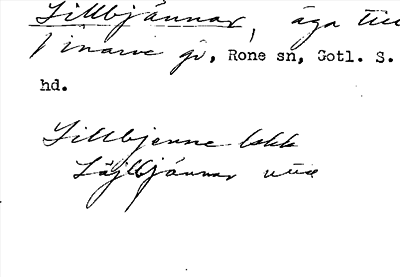 Lillbjännar, äga till
Hinarve gd, Rone sn, Gotl. S.
hd.
Lillbjenne lokk
Läjlbjännar